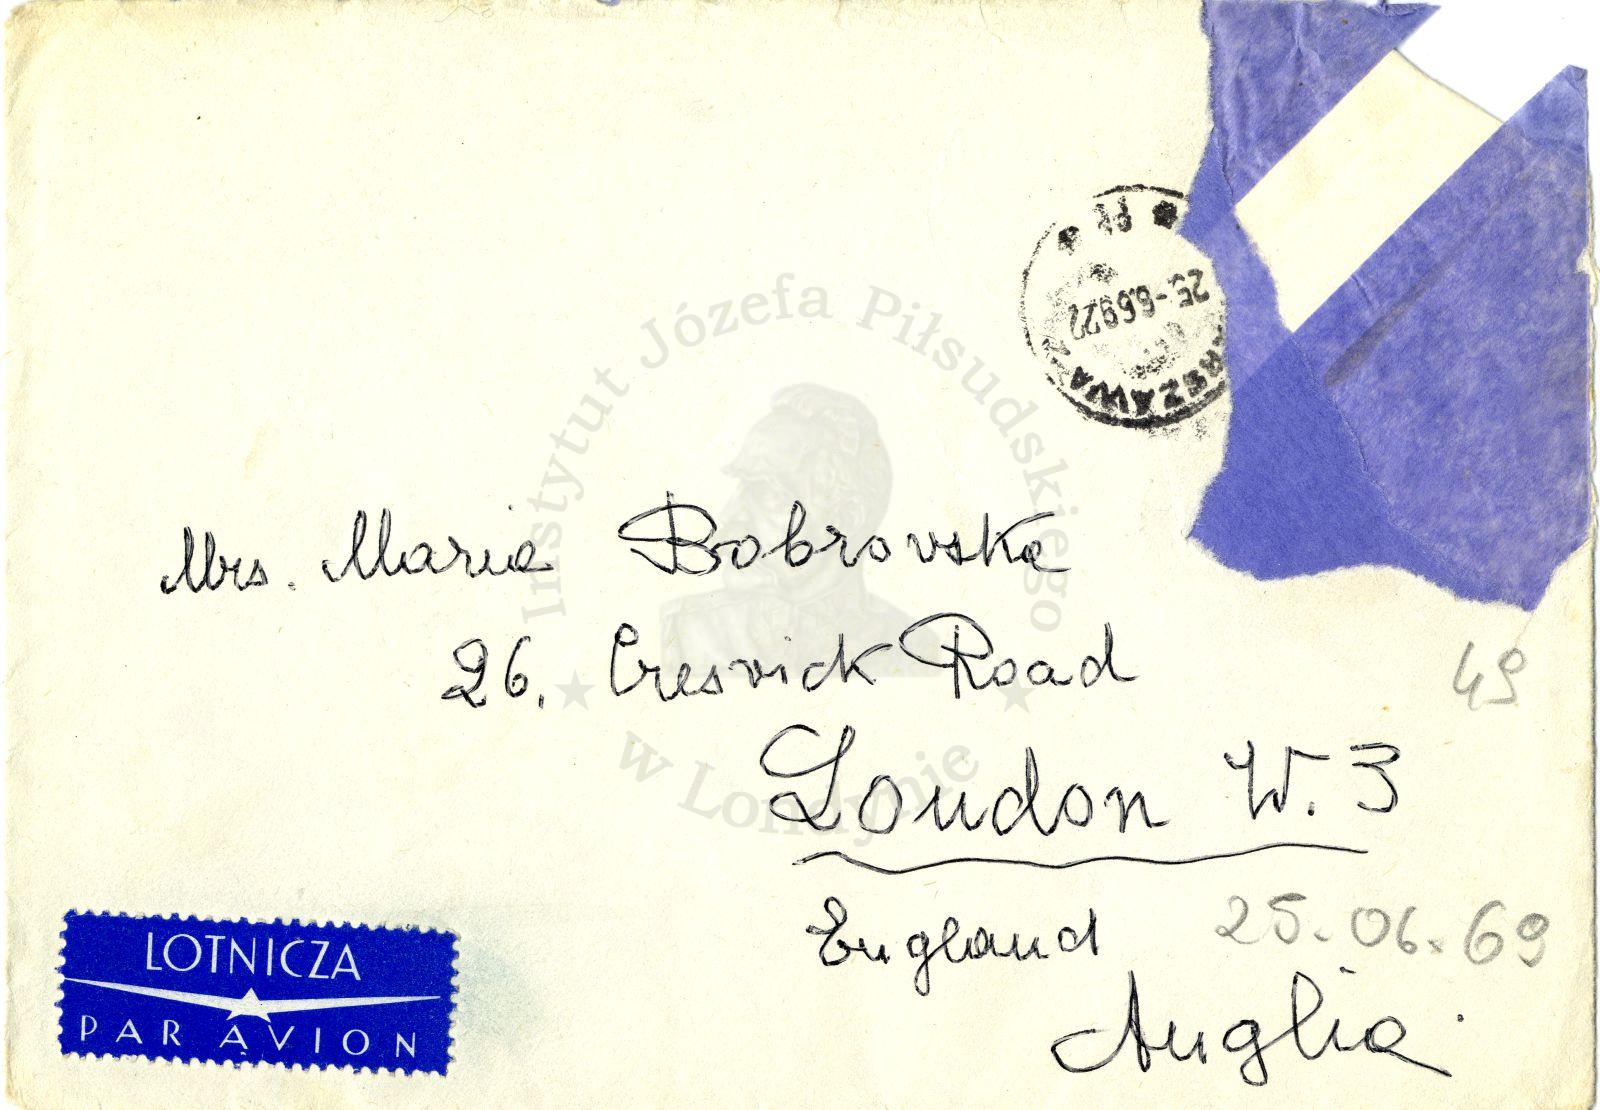 WARSZAWA 2
25.-6.69 22
Instytut Józefa Piłsudskiego
w Londynie
Mrs. Maria Bobrovska
26. Cresvick Road
London W. 3
England
Anglia
49
25-06-69
LOTNICZA
PAR AVION